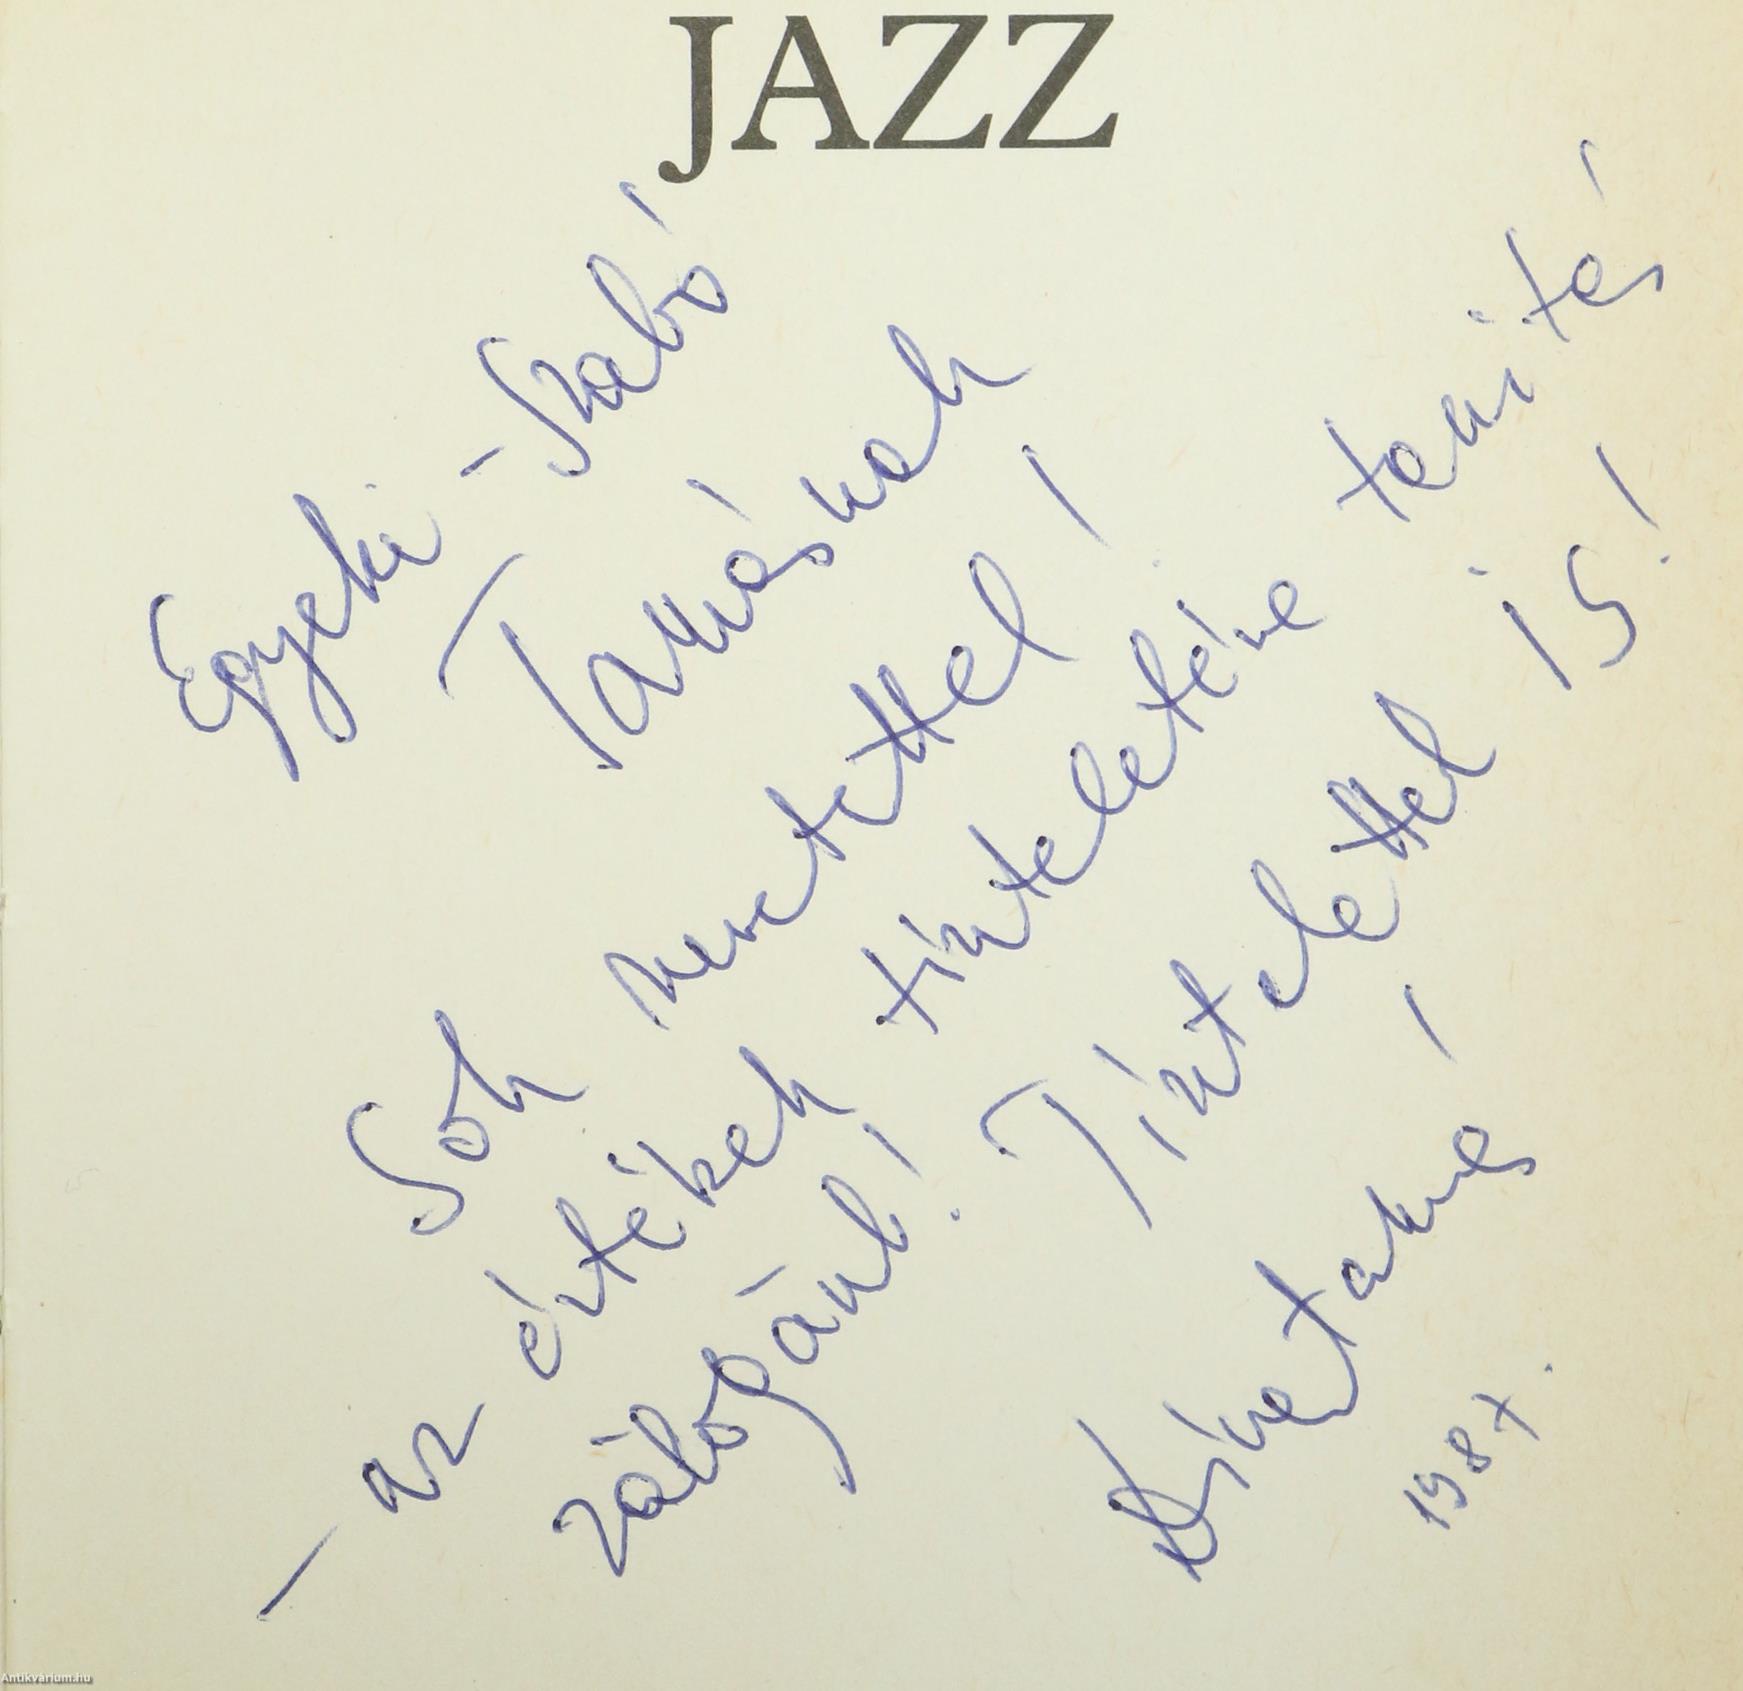 JAZZ
Egyeki-Szabó
Tamásnak
Sok szeretettel!
– az értékek tiszteletére tanítás
zálogául! Tisztelettel is!
1987.
Antikvárium.hu